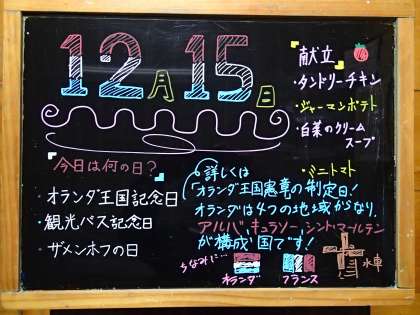 12月15日
献立
・タンドリーチキン
・ジャーマンポテト
・白菜のクリーム
スープ
・ミニトマト
今日は何の日？
・オランダ王国記念日
・観光バス記念日
・ザメンホフの日
詳しくは
「オランダ王国憲章の制定日！
オランダは4つの地域からなり、
アルバ、キュラソー、シント・マールテン
が構成国です！
ちなみに…
オランダ
フランス
水車